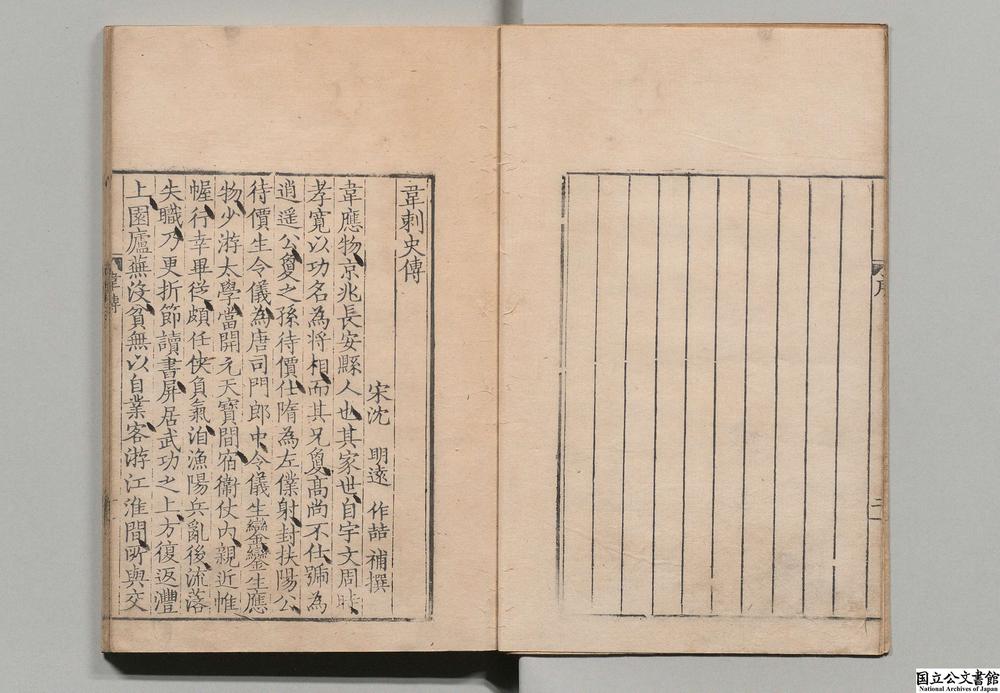 序
二
韋刺史傳
宋沈 明遠 作喆 補撰
韋應物京兆長安縣人也其家世自宇文周時
孝寬以功名為將相而其兄敻高尚不仕號為
逍遥公敻之孫待價仕隋為左僕射封扶陽公
待價生令儀為唐司門郎中令儀生鑾鑾生應
物少游太學當開元天寶間宿衞仗内親近帷
幄行幸畢從頗任俠負氣洎漁陽兵亂後流落
失職乃更折節讀書屏居武功之上方復返灃
上園廬蕪没貧無以自業客游江淮間所與交
韋傳
一
国立公文書館
National Archives of Japan